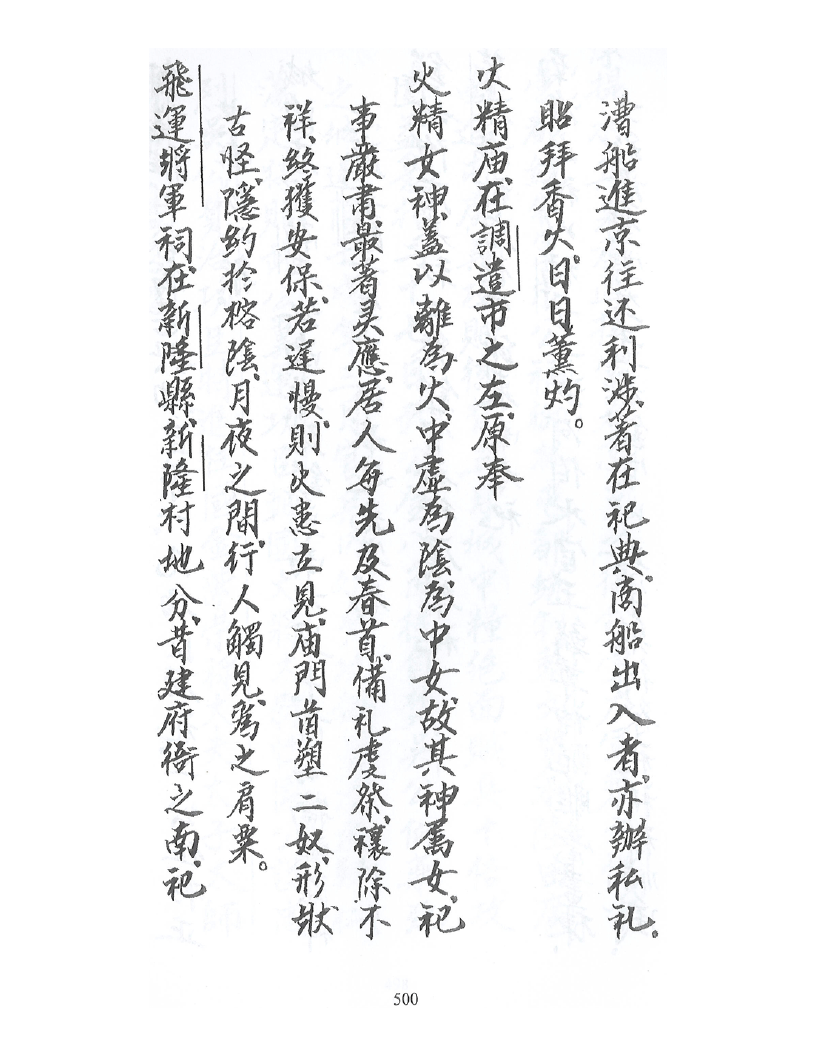 漕船進京往还利涉、著在祀典、商船出入者、亦辦私礼。
昭拜香火、日日薰灼。
火精庙、在調遣市之左、原奉
火精女神、蓋以離為火、中虛為陰、為中女、故其神属女、祀
事嚴肅、最著灵應、居人每先及春首、備礼虔祭、禳除不
祥、終獲安保、若遲慢、則火患立見、庙門首塑二奴、形狀
古怪、隱約於榕陰、月夜之間、行人觸見、為之肩粟。
飛運將軍祠、在新隆縣、新隆村地分、昔建府衙之南、祀
500